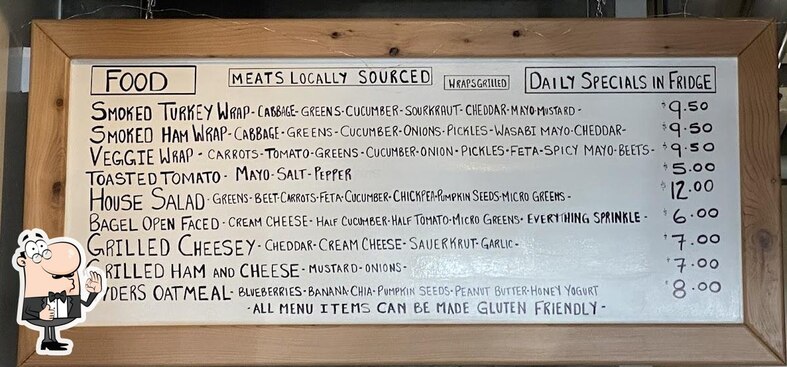 FOOD MEATS LOCALLY SOURCED WRAPS GRILLED DAILY SPECIALS IN FRIDGE
SMOKED TURKEY WRAP - CABBAGE - GREENS - CUCUMBER - SOURKRAUT - CHEDDAR - MAYO MUSTARD - $9.50
SMOKED HAM WRAP - CABBAGE - GREENS - CUCUMBER - ONIONS - PICKLES - WASABI MAYO - CHEDDAR - $9.50
VEGGIE WRAP - CARROTS - TOMATO - GREENS - CUCUMBER - ONION - PICKLES - FETA - SPICY MAYO - BEETS - $9.50
TOASTED TOMATO - MAYO - SALT - PEPPER $5.00
HOUSE SALAD - GREENS - BEET - CARROTS - FETA - CUCUMBER - CHICKPEA - PUMPKIN SEEDS - MICRO GREENS - $12.00
BAGEL OPEN FACED - CREAM CHEESE - HALF CUCUMBER - HALF TOMATO - MICRO GREENS - EVERYTHING SPRINKLE - $6.00
GRILLED CHEESEY - CHEDDAR - CREAM CHEESE - SAUERKRUT - GARLIC - $7.00
GRILLED HAM AND CHEESE - MUSTARD - ONIONS - $7.00
YDERS OATMEAL - BLUEBERRIES - BANANA - CHIA - PUMPKIN SEEDS - PEANUT BUTTER - HONEY YOGURT $8.00
- ALL MENU ITEMS CAN BE MADE GLUTEN FRIENDLY -